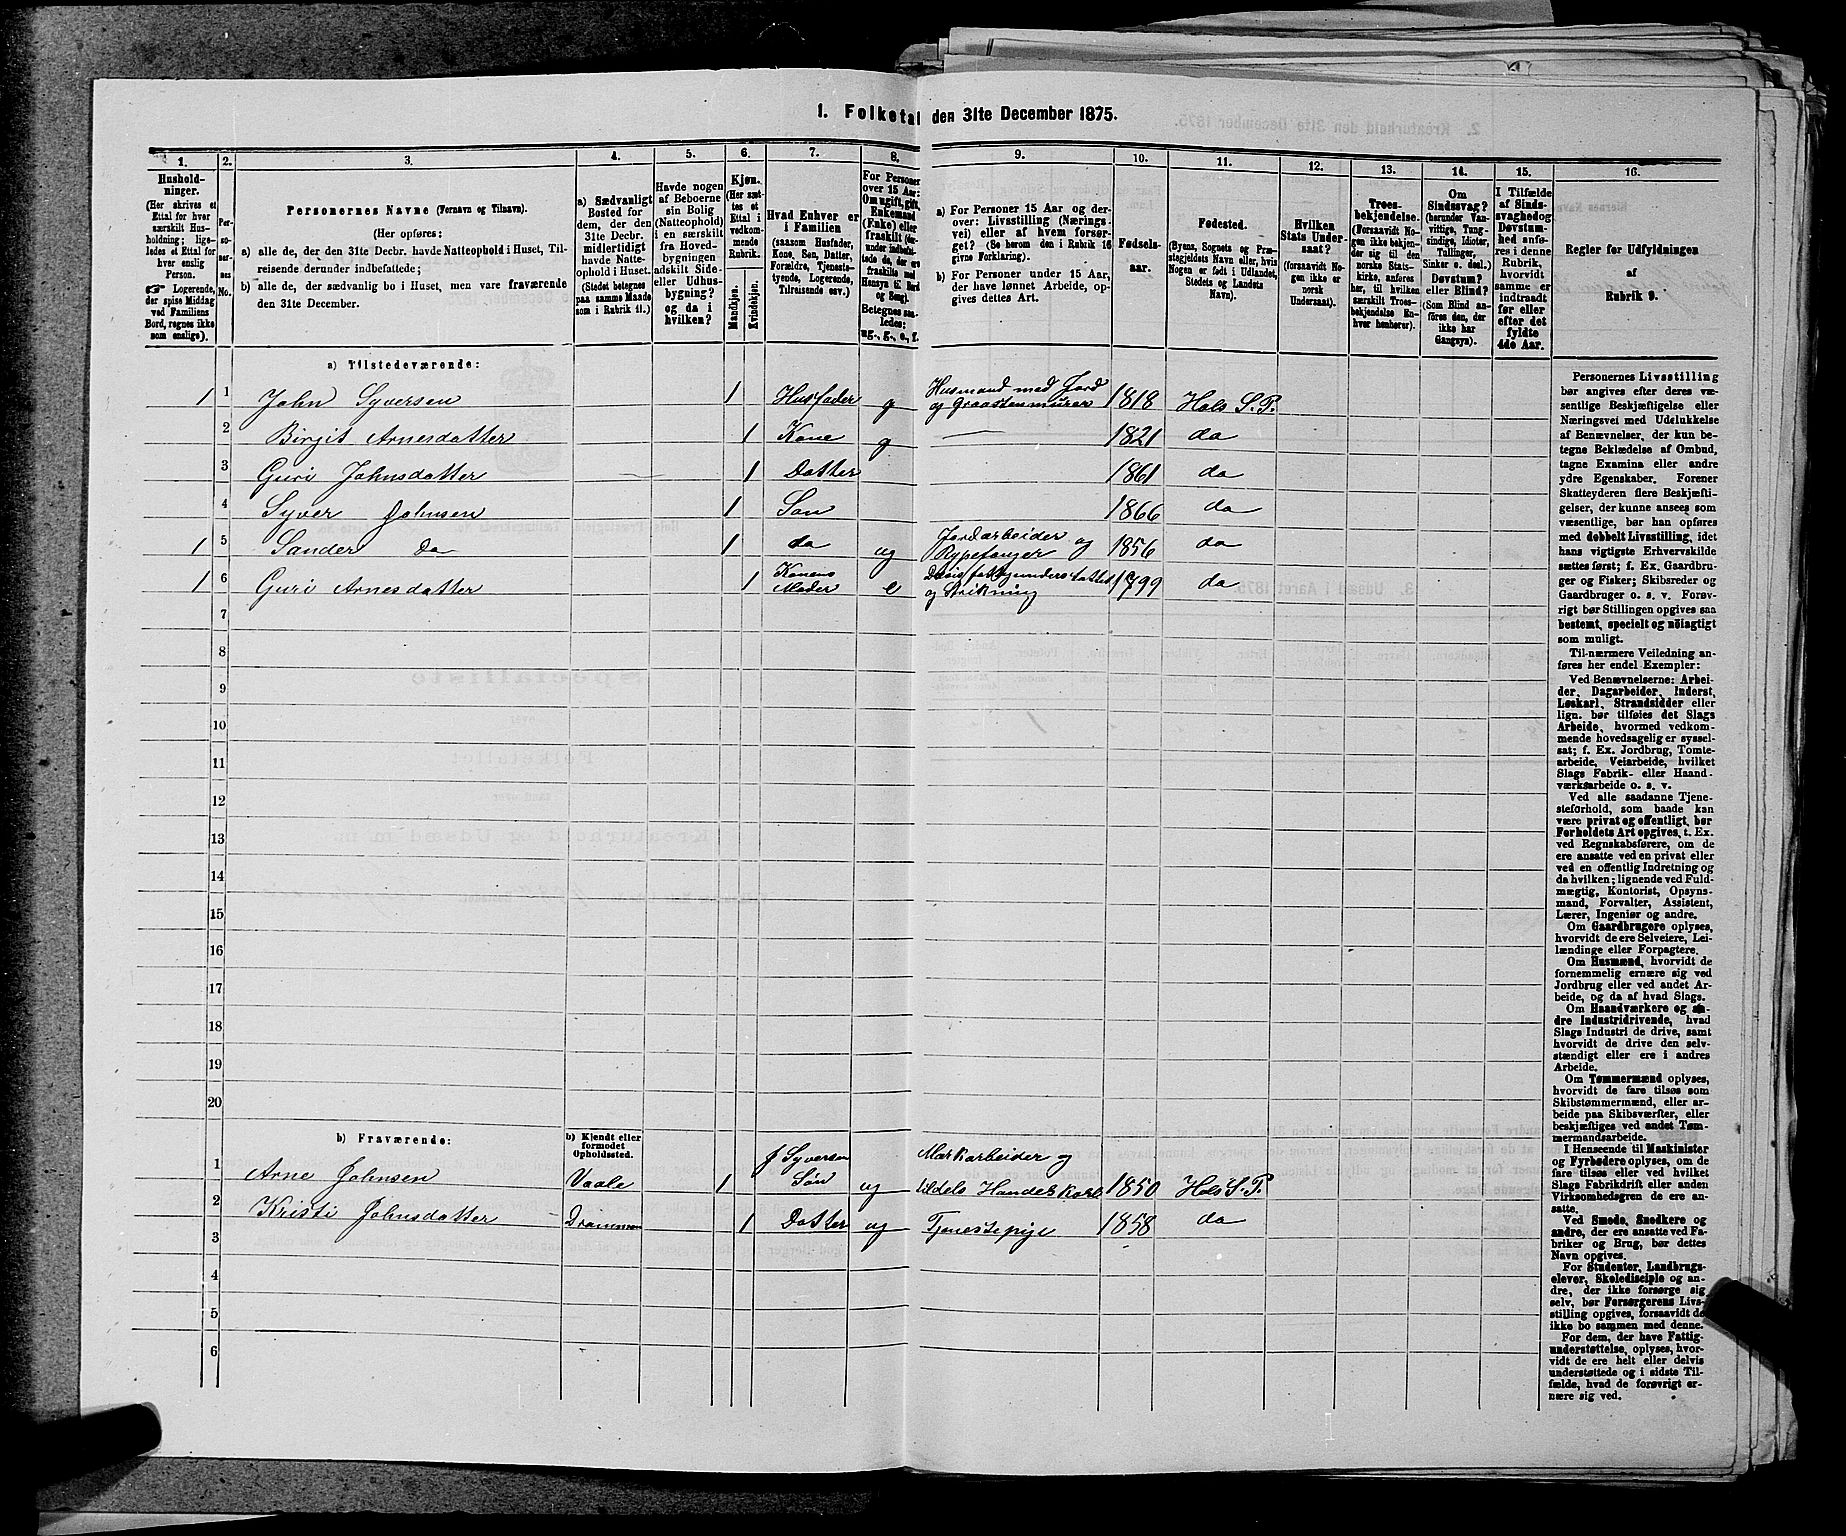 1. Folketal den 31te December 1875.
1. 2. 3. 4. 5. 6. 7. 8. 9. 10. 11. 12. 13. 14. 15. 16.
Hushold-
ninger.
(Her skrives et
Ettal for hver
særskilt Hus-
holdning; lige-
ledes et Ettal for
hver enslig
Person.
☞ Logerende,
der spise Middag
ved Familiens
Bord, regnes ikke
som enslige).
Per-
so-
ner-
nes
No.
Personernes Navne (Fornavn og Tilnavn).
(Her opføres:
a) alle de, der den 31te Decbr. havde Natteophold i Huset, Til-
reisende derunder indbefattede;
b) alle de, der sædvanlig bo i Huset, men vare fraværende
den 31te December.
a) Sædvanligt
Bosted for
dem, der den
31te Decbr.
midlertidigt
havde Natte-
ophold i Huset.
(Stedet betegnes
paa samme Maade
som i Rubrik 11.)
Havde nogen
af Beboerne
sin Bolig
(Natteophold)
i en særskilt
fra Hoved-
bygningen
adskilt Side-
eller Udhus-
bygning?
og da i
hvilken?
Kjøn.
(Her sæt-
tes et
Ettal i
vedkom-
mende
Rubrik.
Mandkjøn.
Kvindekjøn.
Hvad Enhver er
i Familien
(saasom Husfader,
Kone, Søn, Datter,
Forældre, Tjeneste-
tyende, Logerende,
Tilreisende osv.)
For Personer
over 15 Aar:
Om ugift, gift,
Enkemand
(Enke) eller
fraskilt (der-
under indbefat-
tede de, der ere
fraskilte med
Hensyn til Bord
og Seng).
Betegnes saa-
ledes:
ug., g., e., f.
a) For Personer 15 Aar og der-
over: Livsstilling (Nærings-
vei) eller af hvem forsør-
get? (Se herom den i Rubrik 16
givne Forklaring).
b) For Personer under 15 Aar,
der have lønnet Arbeide, op-
gives dettes Art.
Fødsels-
aar.
Fødested.
(Byens, Sognets og Præ-
stegjeldets Navn eller, hvis
Nogen er født i Udlandet,
Stedets og Landets
Navn).
Hvilken
Stats Under-
saat?
(forsaavidt No-
gen ikke er
norsk
Undersaat).
Troes-
bekjendelse.
(Forsaavidt No-
gen ikke bekjen-
der sig til den
norske Stats-
kirke, anføres
her, til hvilken
særskilt Troes-
bekjendelse En-
hver henhører).
Om
Sindssvag?
(herunder Van-
vittige, Tung-
sindige, Idioter,
Tullinger,
Sinker o. desl.)
Døvstum?
eller Blind?
(Som Blind an-
føres den, der
ikke har
Gangsyn).
I Tilfælde
af Sinds-
svaghed og
Døvstum-
hed anfø-
res i denne
Rubrik,
hvorvidt
samme er
indtraadt
før eller
efter det
fyldte
4de Aar.
Regler for Udfyldningen
af
Rubrik 9.
a) Tilstedeværende:
1 1 John Syversen 1 Husfader g Husmand med Jord og Graastenmurer 1818 Hols S.P.
2 Birgit Arnesdatter 1 Kone g — 1821 da
3 Guri Johnsdatter — 1 Datter 1861 da
4 Syver Johnsen 1 Søn 1866 da
1 5 Sander Do 1 da ug Jordarbeider og Rypefanger 1856 da
1 6 Guri Arnesdatter 1 Konens Moder e og Strikning 1799 da
7
8
9
10
11
12
13
14
15
16
17
18
19
20
b) Fraværende:
b) Kjendt eller
formodet
Opholdssted.
1 Arne Johnsen Vaale 1 J Syversen Søn ug Markarbeider og tildels Handelskarl 1850 Hols S.P.
2 Kristi Johnsdatter — Drammen 1 Datter ug Tjenestepige 1858 da
3
4
5
6
Personernes Livsstilling
bør angives efter deres væ-
sentlige Beskjæftigelse eller
Næringsvei med Udelukkelse
af Benævnelser, der kun be-
tegne Beklædelse af Ombud,
tagne Examina eller andre
ydre Egenskaber. Forener
Skatteyderen flere Beskjæfti-
gelser, der kunne ansees som
væsentlige, bør han opføres
med dobbelt Livsstilling, idet
hans vigtigste Erhvervskilde
sættes først; f. Ex. Gaardbru-
ger og Fisker; Skibsreder og
Gaardbruger o. s. v. Forøv-
rigt bør Stillingen opgives saa
bestemt, specielt og nöiagtigt
som muligt.
Til nærmere Veiledning an-
føres her endel Exempler:
Ved Benævnelserne: Arbei-
der, Dagarbeider, Inderst,
Løskarl, Strandsidder eller
lign. bør tilføies det Slags
Arbeide, hvormed vedkom-
mende hovedsagelig er syssel-
sat; f. Ex. Jordbrug, Tomte-
arbeide, Veiarbeide, hvilket
Slags Fabrik- eller Haand-
værksarbeide o. s. v.
Ved alle saadanne Tjene-
steførhold, som baade kan
være privat og offentligt, bør
Forholdets Art opgives, t. Ex.
ved Regnskabsførere, om de
ere ansatte ved en privat eller
ved en offentlig Indretning og
da hvilken; lignende ved Fuld-
mægtig, Kontorist, Opsyns-
mand, Forvalter, Assistent,
Lærer, Ingeniør og andre.
Om Gaardbrugere oplyses,
hvorvidt de ere Selveiere, Lei-
lændinge eller Forpagtere.
Om Husmænd, hvorvidt de
fornemmelig ernære sig ved
Jordbrug eller ved andet Ar-
beide, og da af hvad Slags.
Om Haandværkere og an-
dre Industridrivende, hvad
Slags Industri de drive, samt
hvorvidt de drive den selv-
stændigt eller ere i andres
Arbeide.
Om Tømmermænd oplyses,
hvorvidt de fare tilsøs som
Skibstømmermænd, eller ar-
beide paa Skibsværfter, eller
beskjæftiges ved andet Tøm-
mermandsarbeide.
I Henseende til Maskinister
og Fyrbødere oplyses, om de
fare tilsøs eller ved hvilket
Slags Fabrikdrift eller anden
Virksomhedsgren de ere an-
satte.
Ved Smede, Snedkere og
andre, der ere ansatte ved Fa-
briker og Brug, bør dettes
Navn opgives.
For Studenter, Landbrugs-
elever, Skoledisciple og an-
dre, der ikke forsørge sig
selv, bør Forsørgerens Livs-
stilling opgives, forsaavidt de
ikke bo sammen med denne.
For dem, der have Fattig-
understøttelse, oplyses, hvor-
vidt de ere helt eller delvis
understøttede og i sidste Til-
fælde, hvad de forøvrigt er-
nære sig ved.